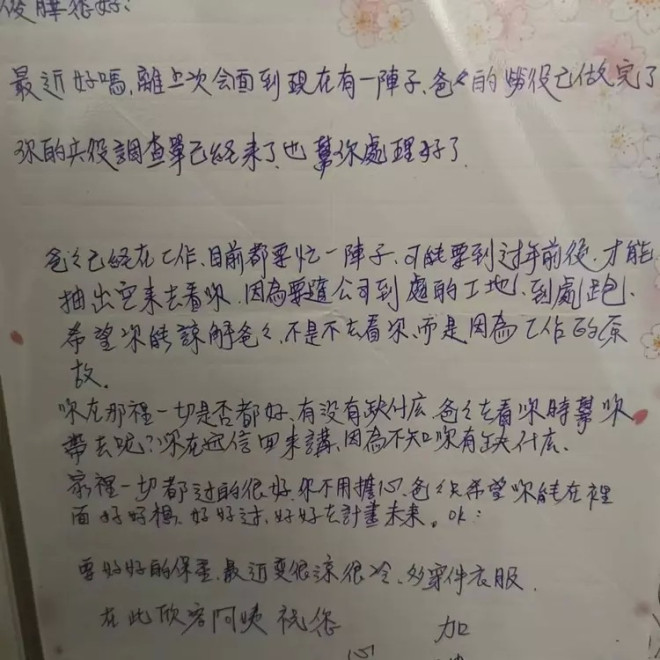 俊驊您好:
最近好嗎,離上次会面到現在有一陣子、爸々的勞役已做完了
你的兵役調查單已経来了也幫你處理好了.
爸々已経在工作、目前都要忙一陣子、可能要到过年前後,才能
抽出空来去看你.因為要遠公司到處的工地、到處跑、
希望你能諒解爸々,不是不去看你、而是因為工作的原
故.
你在那裡一切是否都好、有沒有缺什麽 爸々去看你時幫你
帶去呢?你在写信回来講,因為不知你有缺什麽.
家裡一切都过的很好、你不用擔心、爸々只希望你能在裡
面好好想、好好过、好好去計畫未来。ok:
要好好的保重、最近变很涼很冷、多穿件衣服.
在此欣容阿姨祝您 加
心